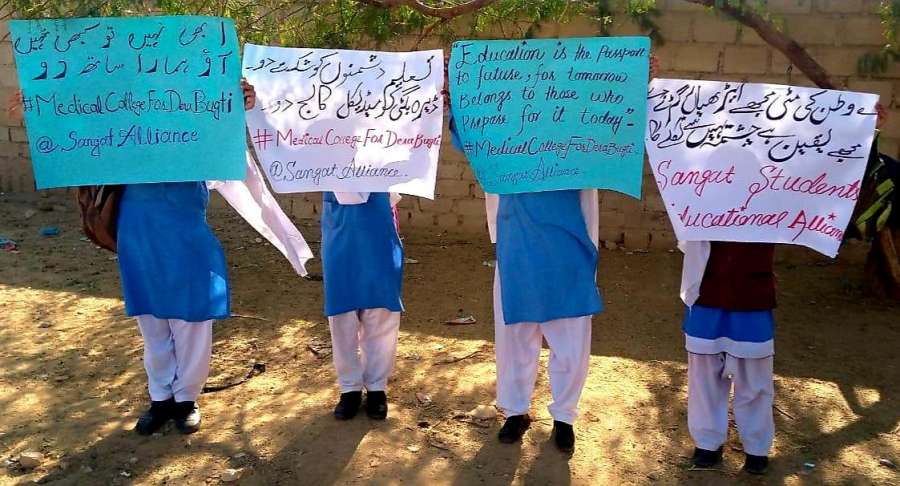 ابھی نہیں تو کبھی نہیں
آؤ ہمارا ساتھ دو
#Medical CollgeForDera Bugti
@ Sangat Alliance
تعلیم دشمنوں کو شکست دو۔
ڈیرہ بگٹی کو میڈیکل کالج دو۔
#Medical CollegeForDeraBugti
@Sangat Alliance.
"Education is the Passport
to future, for tomorrow
Belongs to those who
Prepare for it today"-
#MedicalCollegeForDeraBugti.
@Sangat Alliance
اے وطن کی مٹی مجھے دے
مجھے یقین ہے چشمہ یہیں سے نکلے گا
Sangat Students
Educational Alliance